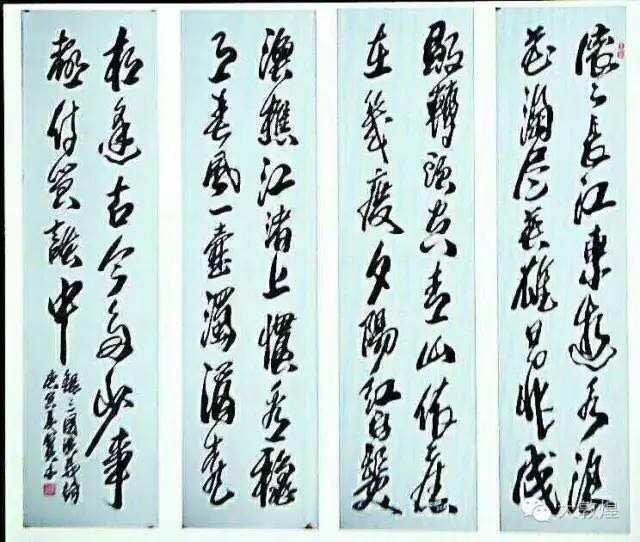 滚〻長江東逝水浪
花淘尽英雄是非成
敗轉頭空青山依舊
在幾度夕陽紅白髮
漁樵江渚上慣看穐
月春風一壶濁酒喜
相逢古今多少事
都付笑談中
録三國演義詞
庚寅春
大敦煌